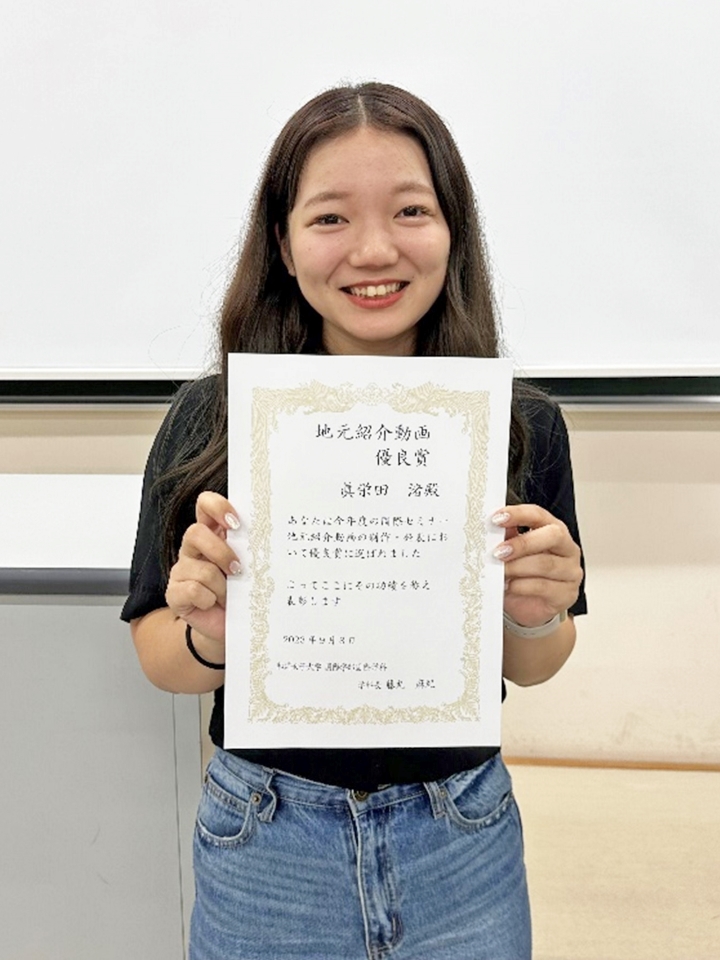 地元紹介動画
優良賞
眞栄田 渚殿
あなたは今年度の国際セミナー
地元紹介動画の制作・発表にお
いて優良賞に選ばれました
よってここにその功績を称え
表彰します
2023年9月8日
大学
学科長 藤丸 麻紀